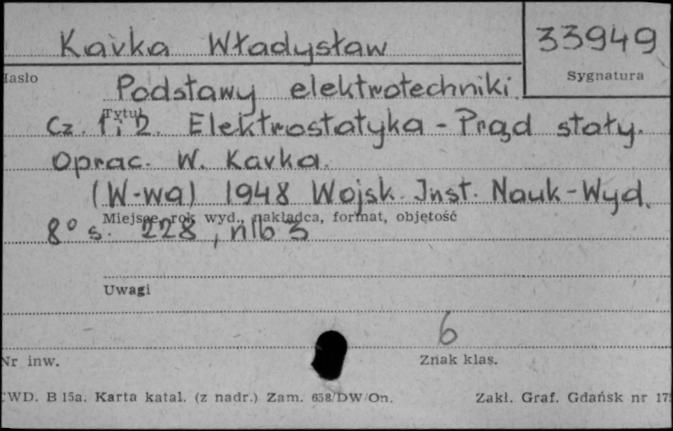 Kavka Władysław
33949
Hasło
Sygnatura
Podstawy elektrotechniki.
Tytuł
Cz. 1 i 2. Elektrostatyka - Prąd stały.
Oprac. W. Kavka.
(W-wa) 1948 Wojsk. Inst. Nauk-Wyd.
Miejsce, rok wyd., nakładca, format, objętość
8° s. 228, nlb 3
Uwagi
6
Nr inw.
Znak klas.
CWD. B 15a. Karta katal. (z nadr.) Zam. 638/DW/On.
Zakł. Graf. Gdańsk nr 175